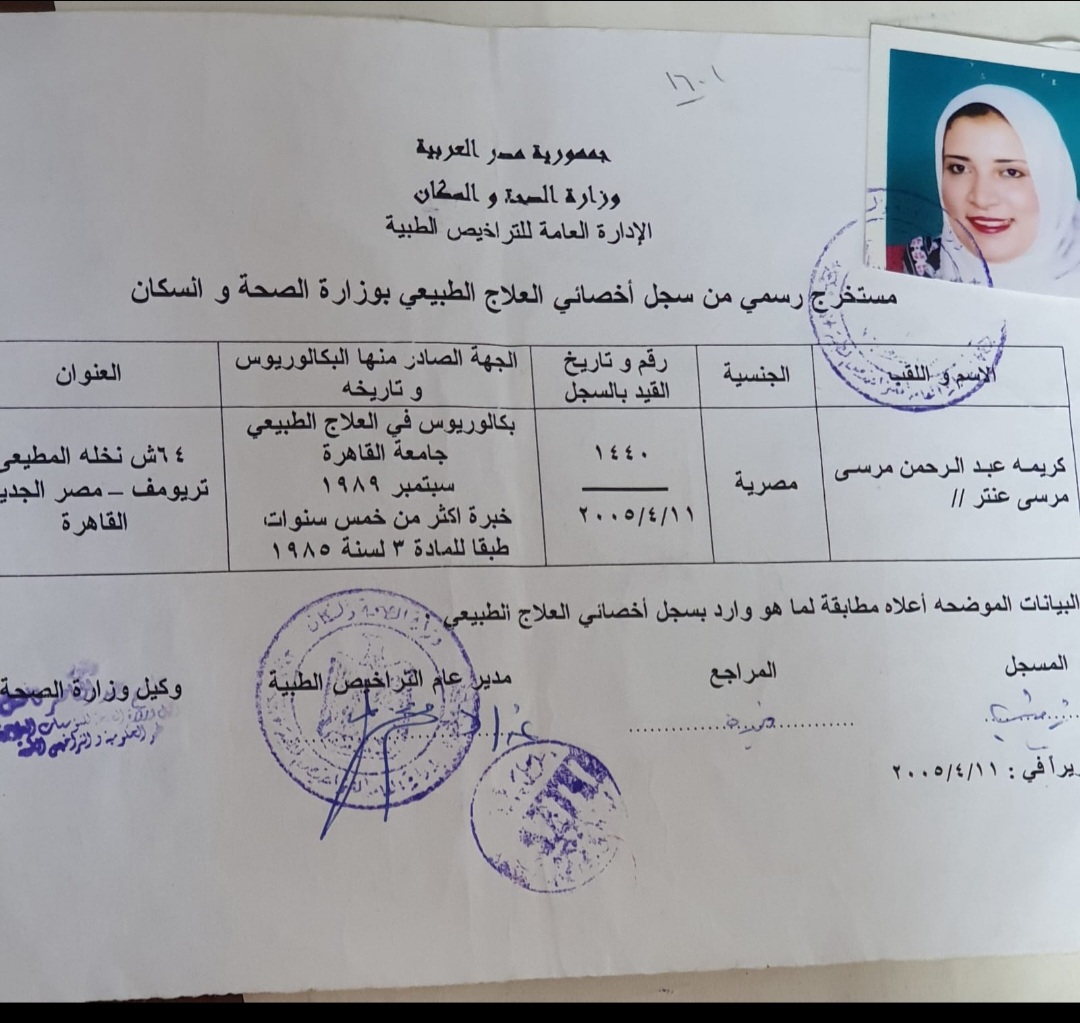 ١٦٠١
جمهورية مصر العربية
وزارة الصحة و السكان
الإدارة العامة للتراخيص الطبية
مستخرج رسمي من سجل أخصائي العلاج الطبيعي بوزارة الصحة و السكان
الاسم و اللقب
الجنسية
رقم و تاريخ
القيد بالسجل
الجهة الصادر منها البكالوريوس
و تاريخه
العنوان
كريمه عبد الرحمن مرسى
مرسى عنتر //
مصرية
١٤٤٠
٢٠٠٥/٤/١١
بكالوريوس في العلاج الطبيعي
جامعة القاهرة
سبتمبر ١٩٨٩
خبرة اكثر من خمس سنوات
طبقا للمادة ٣ لسنة ١٩٨٥
٦٤ش نخله المطيعى
تريومف – مصر الجدي
القاهرة
البيانات الموضحه أعلاه مطابقة لما هو وارد بسجل أخصائي العلاج الطبيعي .
المسجل
المراجع
مدير عام التراخيص الطبية
وكيل وزارة الصحة
يرأ في : ٢٠٠٥/٤/١١